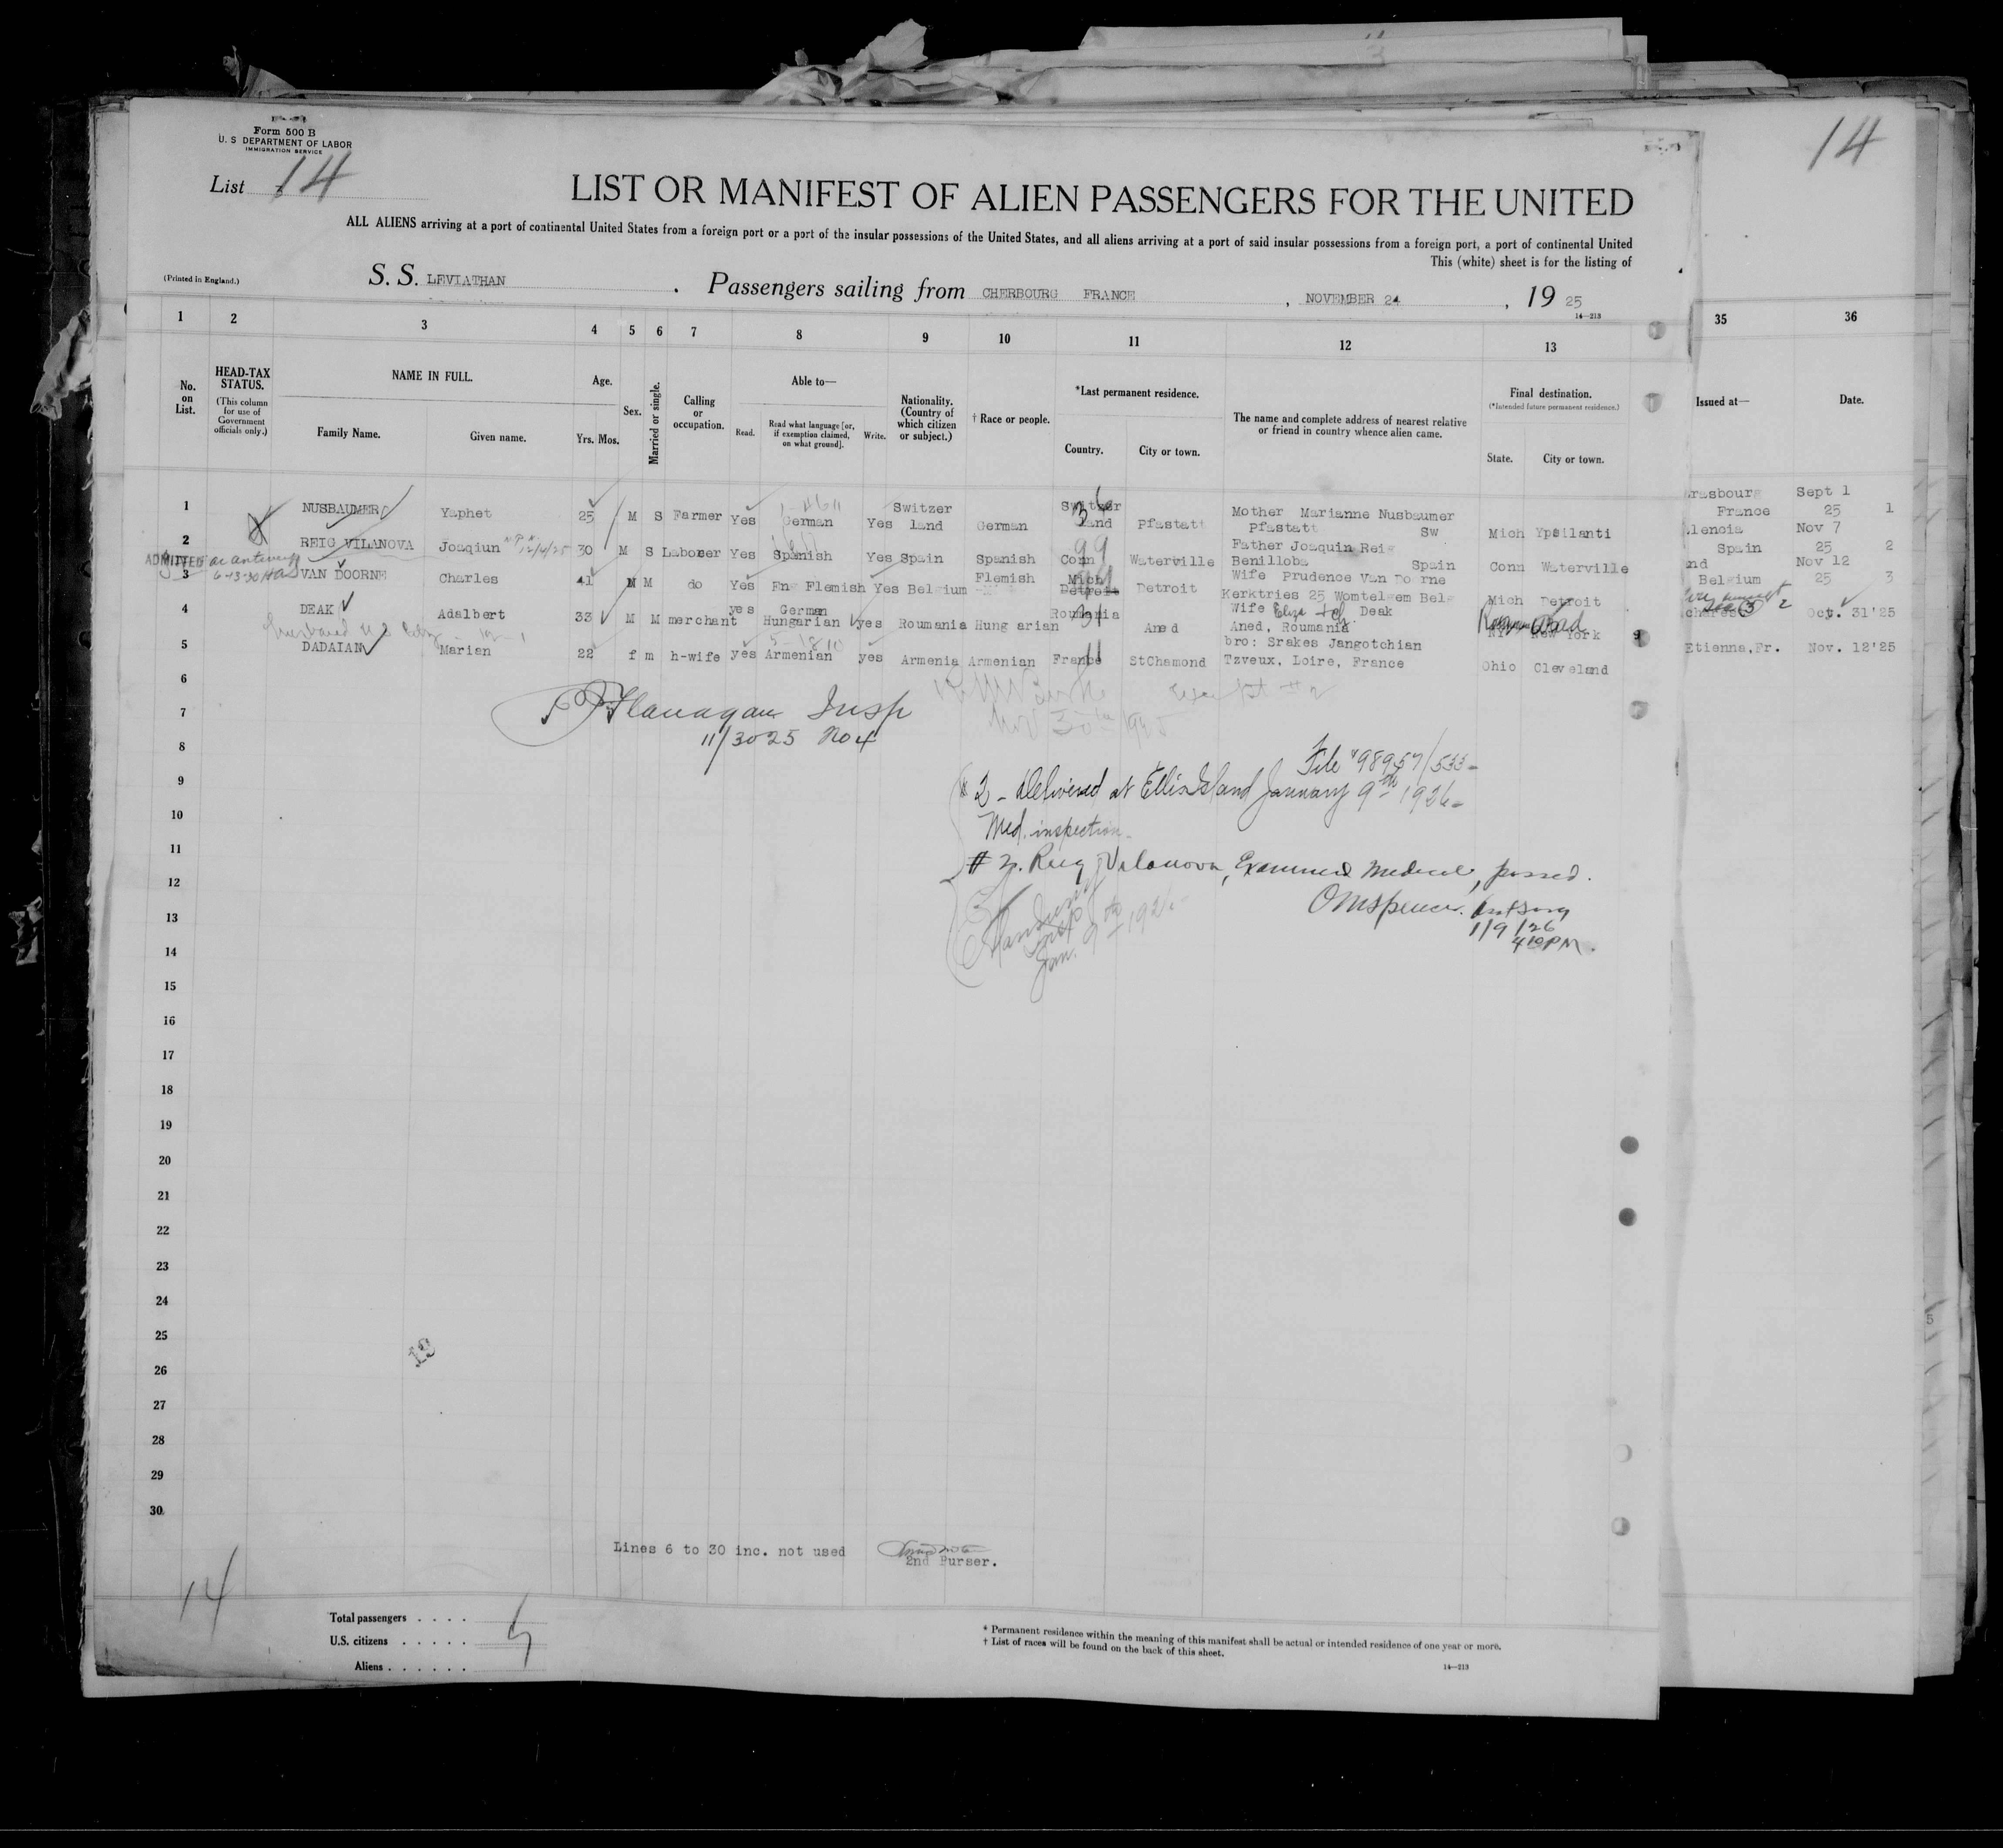 14
Form 500 B
U. S DEPARTMENT OF LABOR
IMMIGRATION SERVICE
List 14
LIST OR MANIFEST OF ALIEN PASSENGERS FOR THE UNITED
ALL ALIENS arriving at a port of continental United States from a foreign port or a port of the insular possessions of the United States, and all aliens arriving at a port of said insular possessions from a foreign port, a port of continental United
This (white) sheet is for the listing of
(Printed in England.) S. S. LEVIATHAN . Passengers sailing from CHERBOURG FRANCE , NOVEMBER 24 , 19 25
14—213
1 2 3 4 5 6 7 8 9 10 11 12 13 35 36
No. on List.
HEAD-TAX STATUS.
(This column for use of Government officials only.)
NAME IN FULL.
Family Name. Given name.
Age.
Yrs. Mos.
Sex.
Married or single.
Calling or occupation.
Able to—
Read. Read what language [or, if exemption claimed, on what ground]. Write.
Nationality. (Country of which citizen or subject.)
† Race or people.
*Last permanent residence.
Country. City or town.
The name and complete address of nearest relative or friend in country whence alien came.
Final destination.
(*Intended future permanent residence.)
State. City or town.
Issued at— Date.
1 NUSBAUMER Yaphet 25 M S Farmer Yes German Yes Switzer land German Switzer land Pfastatt Mother Marianne Nusbaumer Pfastatt Sw Mich Ypsilanti rasbourg France Sept 1 25 1
2 REIG VILANOVA Joaqiun 12/4/25 30 M S Laborer Yes Spanish Yes Spain Spanish Conn Waterville Father Joaquin Reig Benilloba Spain Conn Waterville lencia Spain Nov 7 25 2
ADMITTED
3 VAN DOORNE Charles 41 M M do Yes En Flemish Yes Belgium Flemish Mich Detroit Detroit Wife Prudence Van Do rne Kerktries 25 Womtelgem Belg Mich Detroit nd Belgium Nov 12 25 3
4 DEAK Adalbert 33 M M merchant yes German Hungarian yes Roumania Hung arian Roumania Aned Wife Deak Aned, Roumania NY New York Oct. 31'25
5 DADAIAN Marian 22 f m h-wife yes Armenian yes Armenia Armenian France StChamond bro: Srakes Jangotchian Tzveux, Loire, France Ohio Cleveland Etienna,Fr. Nov. 12'25
6
7 Flanagan Insp
8 11/30 25 No 4
File 98957/533
9 #2 - Delivered at Ellis Island January 9th 1926
10
Med. inspection
11 # 2. Reig Vilanova, Examined Medical, passed.
12
13 OMSpencer.
1/9/26
14 4 10 PM.
Jan. 9th 1926
15
16
17
18
19
20
21
22
23
24
25
19
26
27
28
29
30
Lines 6 to 30 inc. not used
2nd Purser.
14
Total passengers . . . .
U.S. citizens . . . . . 5
Aliens . . . . . .
* Permanent residence within the meaning of this manifest shall be actual or intended residence of one year or more.
† List of races will be found on the back of this sheet.
14—213